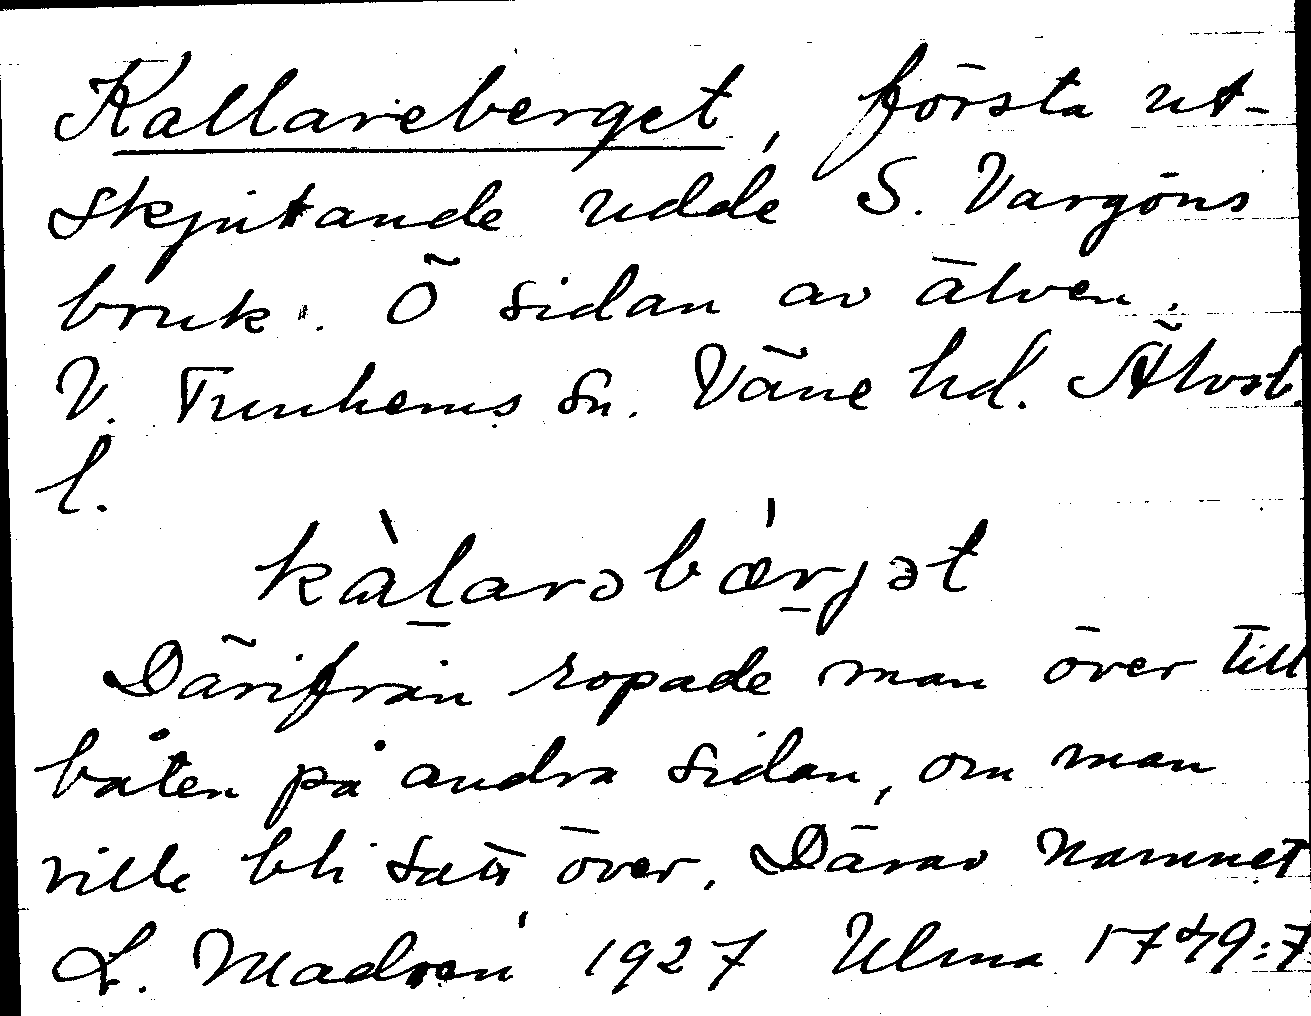 Kallareberget, första ut-
skjutande udde S. Vargöns
bruk. Ö sidan av älven.
V. Tunhems sn. Väne hd. Älvsb.
l.
kàlarəbǽrjət
Därifrån ropade man över till
båten på andra sidan, om man
ville bli satt över. Därav namnet
L. Madsén 1927 Ulma 1749:7